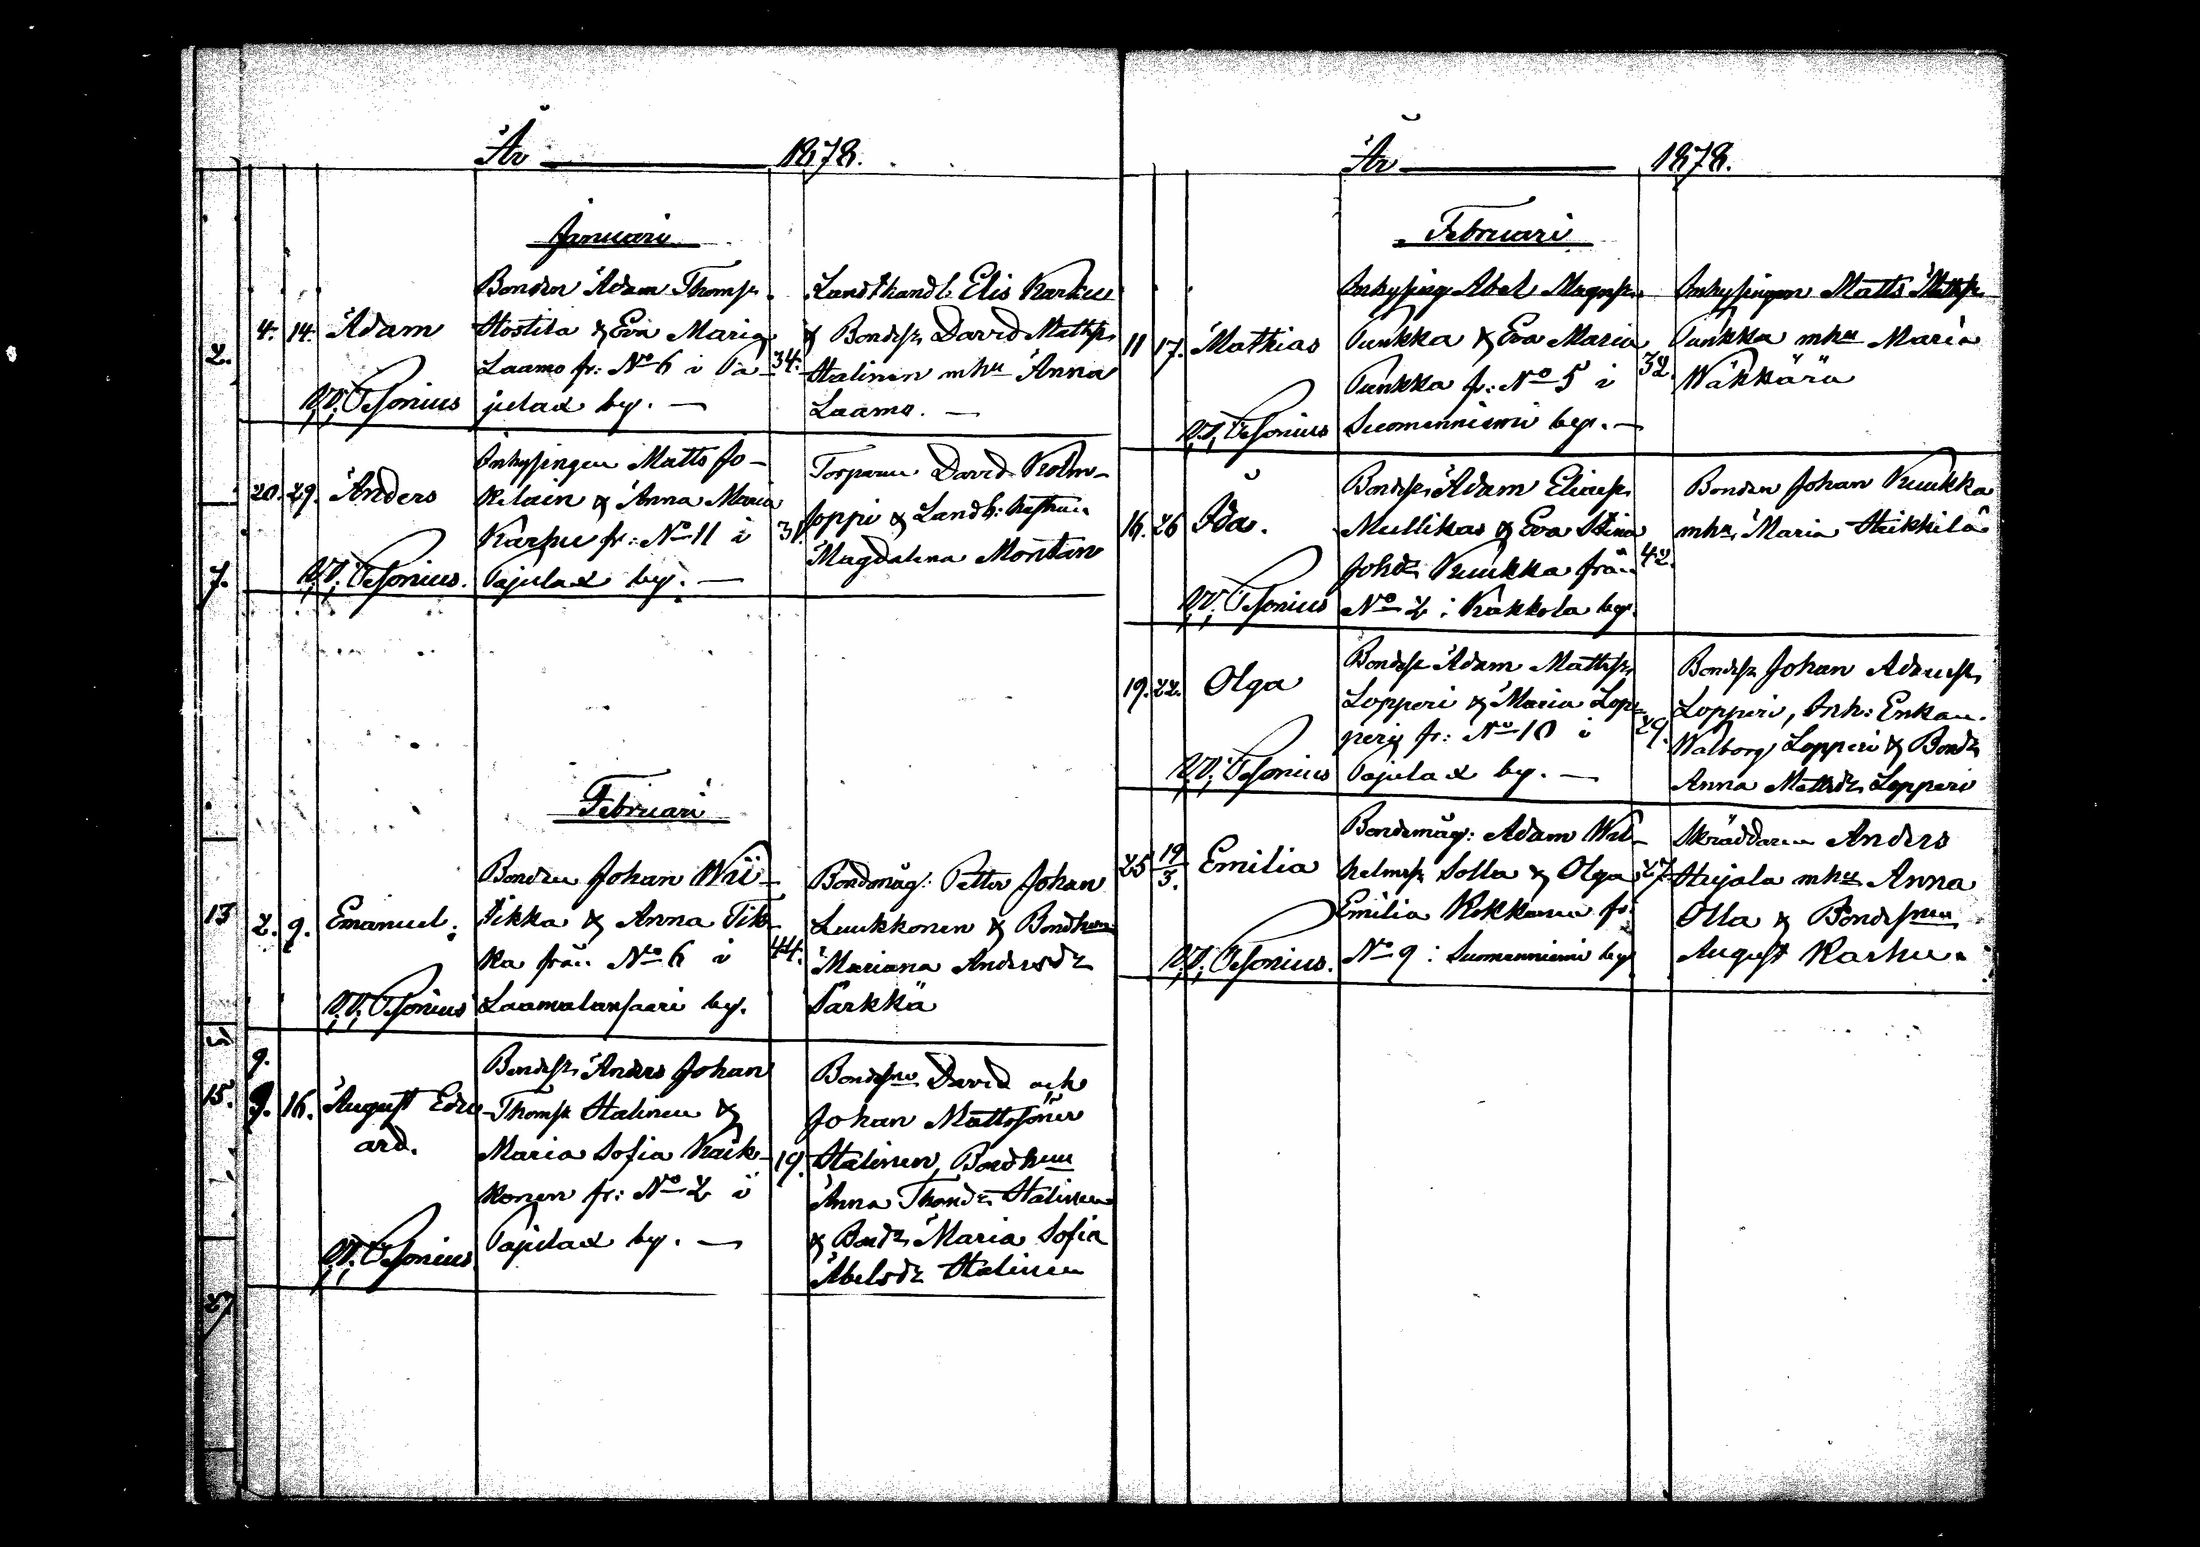 År 1878.
Januari
4. 14. Adam
Bonden Adam Thomss.
Hostila & Eva Maria
Laamo fr: No 6 i Pa-
julax by. —
34.
Landthandl: Elis Karhu
& Bondess. David Mattss.
Halinen m hu Anna
Laamo. —
2.
20. 29. Anders
Inhysingen Matts Jo-
kelain & Anna Maria
Karhu fr: No 11 i
Pajulax by. —
31.
Torparen David Kolm-
joppi & Landh:
Magdalena Montan
7.
Februari
2. 9. Emanuel.
Bonden Johan Wii-
tikka & Anna Tik-
ka från No 6 i
Laamalansaari by.
44.
Bondemåg: Petter Johan
Luukkonen & Bondhun
Mariana Andersdr
Sarkkä
13
9.
9. 16. August Edu-
ard.
Bondess. Anders Johan
Thomss. Halinen &
Maria Sofia Kaik-
konen fr: No 2 i
Pajulax by. —
19.
Bondesne David och
Johan Mattssöner
Halinen, Bondhun
Anna Thomdr Halinen
& Bondr Maria Sofia
Abelsdr Halinen
15.
27
År 1878.
Februari
11 17. Mathias
Inhysing Abel Magnss.
Punkka & Eva Maria
Punkka fr: No 5 i
Suomenniemi by. —
32.
Inhysingen Matts Mattss.
Punkka m hu Maria
Wäkkärä
16. 26 Ida.
Bondess. Adam Eliass.
Mullikas & Eva Stina
Johdr Kuukka från
No 2 i Kakkola by.
42.
Bonden Johan Kuukka
m hu Maria Heikkilä
19. 22. Olga
Bondess. Adam Mattss.
Lopperi & Maria Lop-
peri fr: No 10 i
Pajulax by. —
29.
Bondess. Johan Adamss.
Lopperi, Inh: Enkan
Walborg Lopperi & Bondr
Anna Mattsdr Lopperi
25 19/3. Emilia
Bondemåg: Adam Wil-
helmss. Solla & Olga
Emilia Kokkanen fr:
No 9 i Suomenniemi by
27.
Skräddaren Anders
Heijala m hu Anna
Olla & Bondesnen
August Karhu.